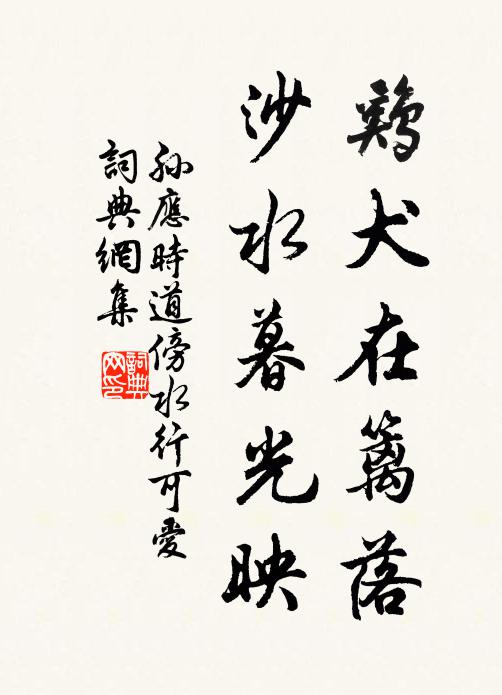 鷄犬在籬落
沙水暮光映
孫應時道傍水行可愛
詞典網集
詞典网印